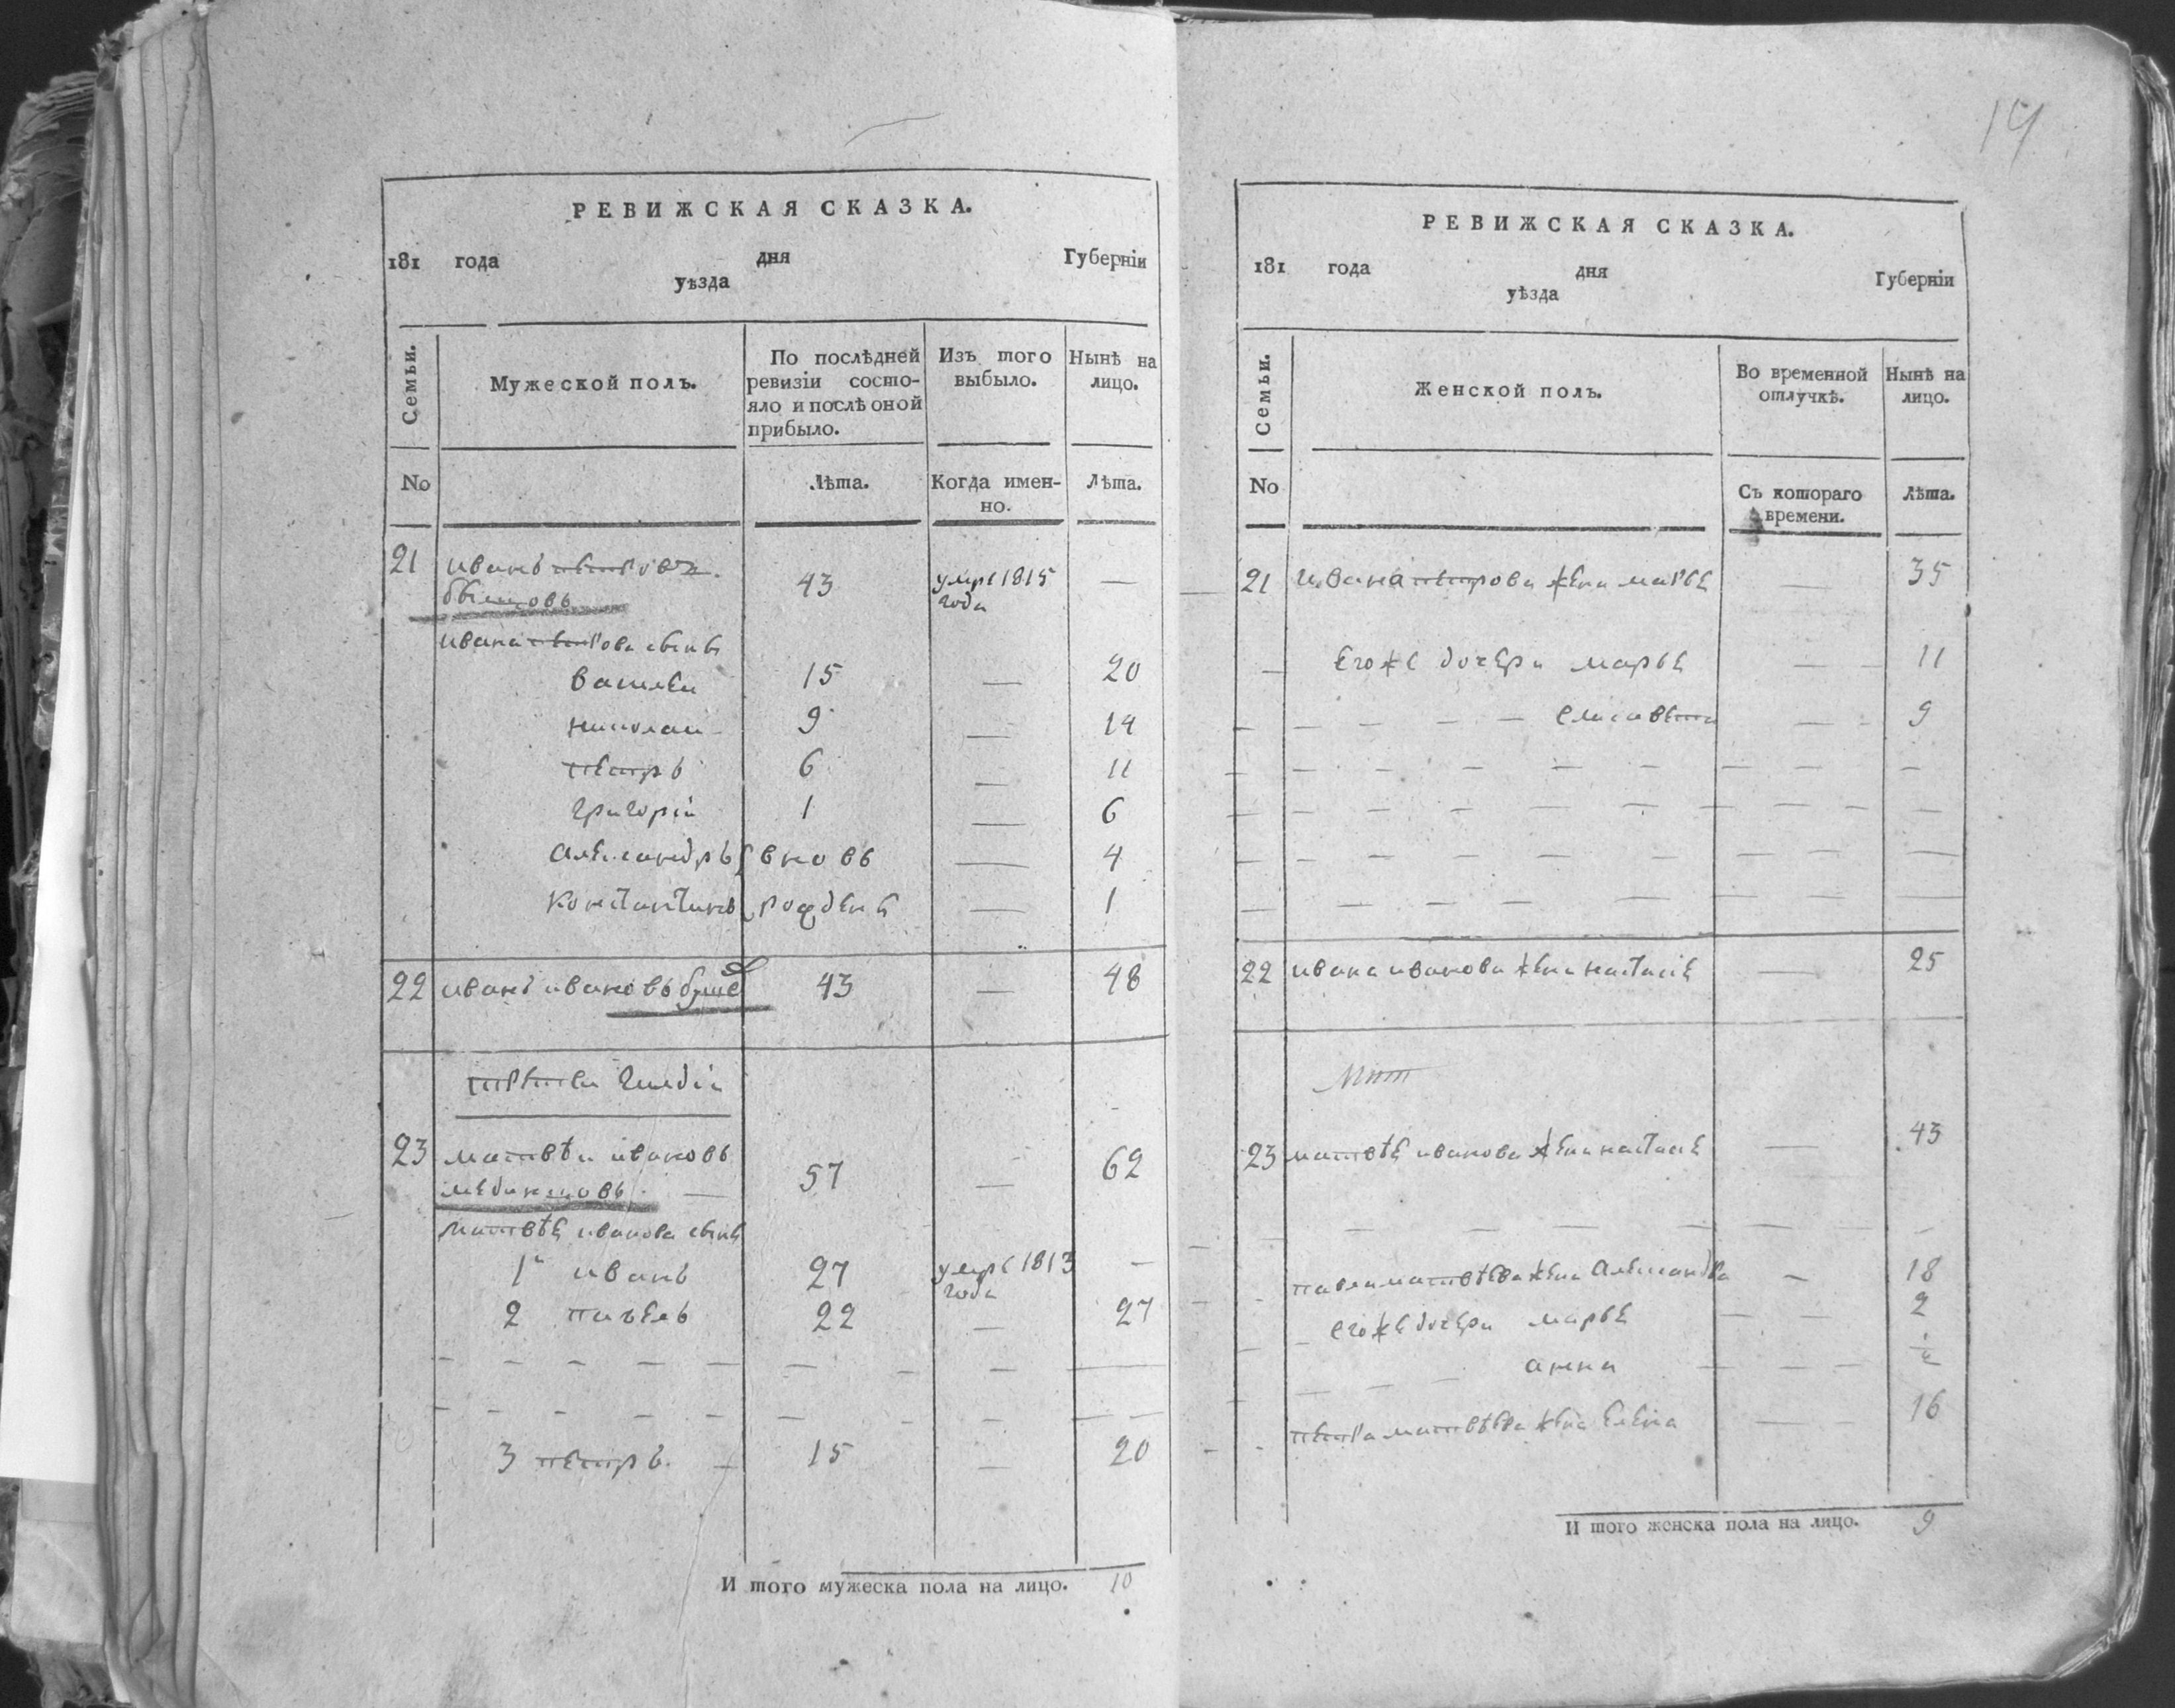 14
РЕВИЖСКАЯ СКАЗКА.
181 года дня Губерніи
уѣзда
Семьи. Мужеской полъ. По послѣдней ревизіи состо- яло и послѣ оной прибыло. Изъ того выбыло. Нынѣ на лицо.
No Лѣта. Когда имен- но. Лѣта.
21 иванъ петровъ 43 умре 1815 —
года
ивана петрова сынъ
василеи 15 — 20
николаи 9 — 14
петръ 6 — 11
григорiи 1 — 6
александръ вновь — 4
константинъ рождены — 1
22 иванъ ивановъ 43 — 48
третьеи гилдiи
23 матвѣи ивановъ 57 — 62
мединцовъ
матвѣе иванова сынъ
1й иванъ 27 умре 1813 —
года
2 павелъ 22 — 27
3 петръ 15 — 20
И того мужеска пола на лицо. 10
РЕВИЖСКАЯ СКАЗКА.
181 года дня Губерніи
уѣзда
Семьи. Женской полъ. Во временной отлучкѣ. Нынѣ на лицо.
No Съ котораго времени. Лѣта.
21 ивана петрова жена марье — 35
егоже дочери марье — 11
елисавета — 9
22 ивана иванова жена настасiе — 25
23 матвѣе иванова жена настасiе — 43
павла матвѣева жена александра — 18
егоже дочери марье — 2
анна
петра матвѣева жена елена — 16
И того женска пола на лицо. 9